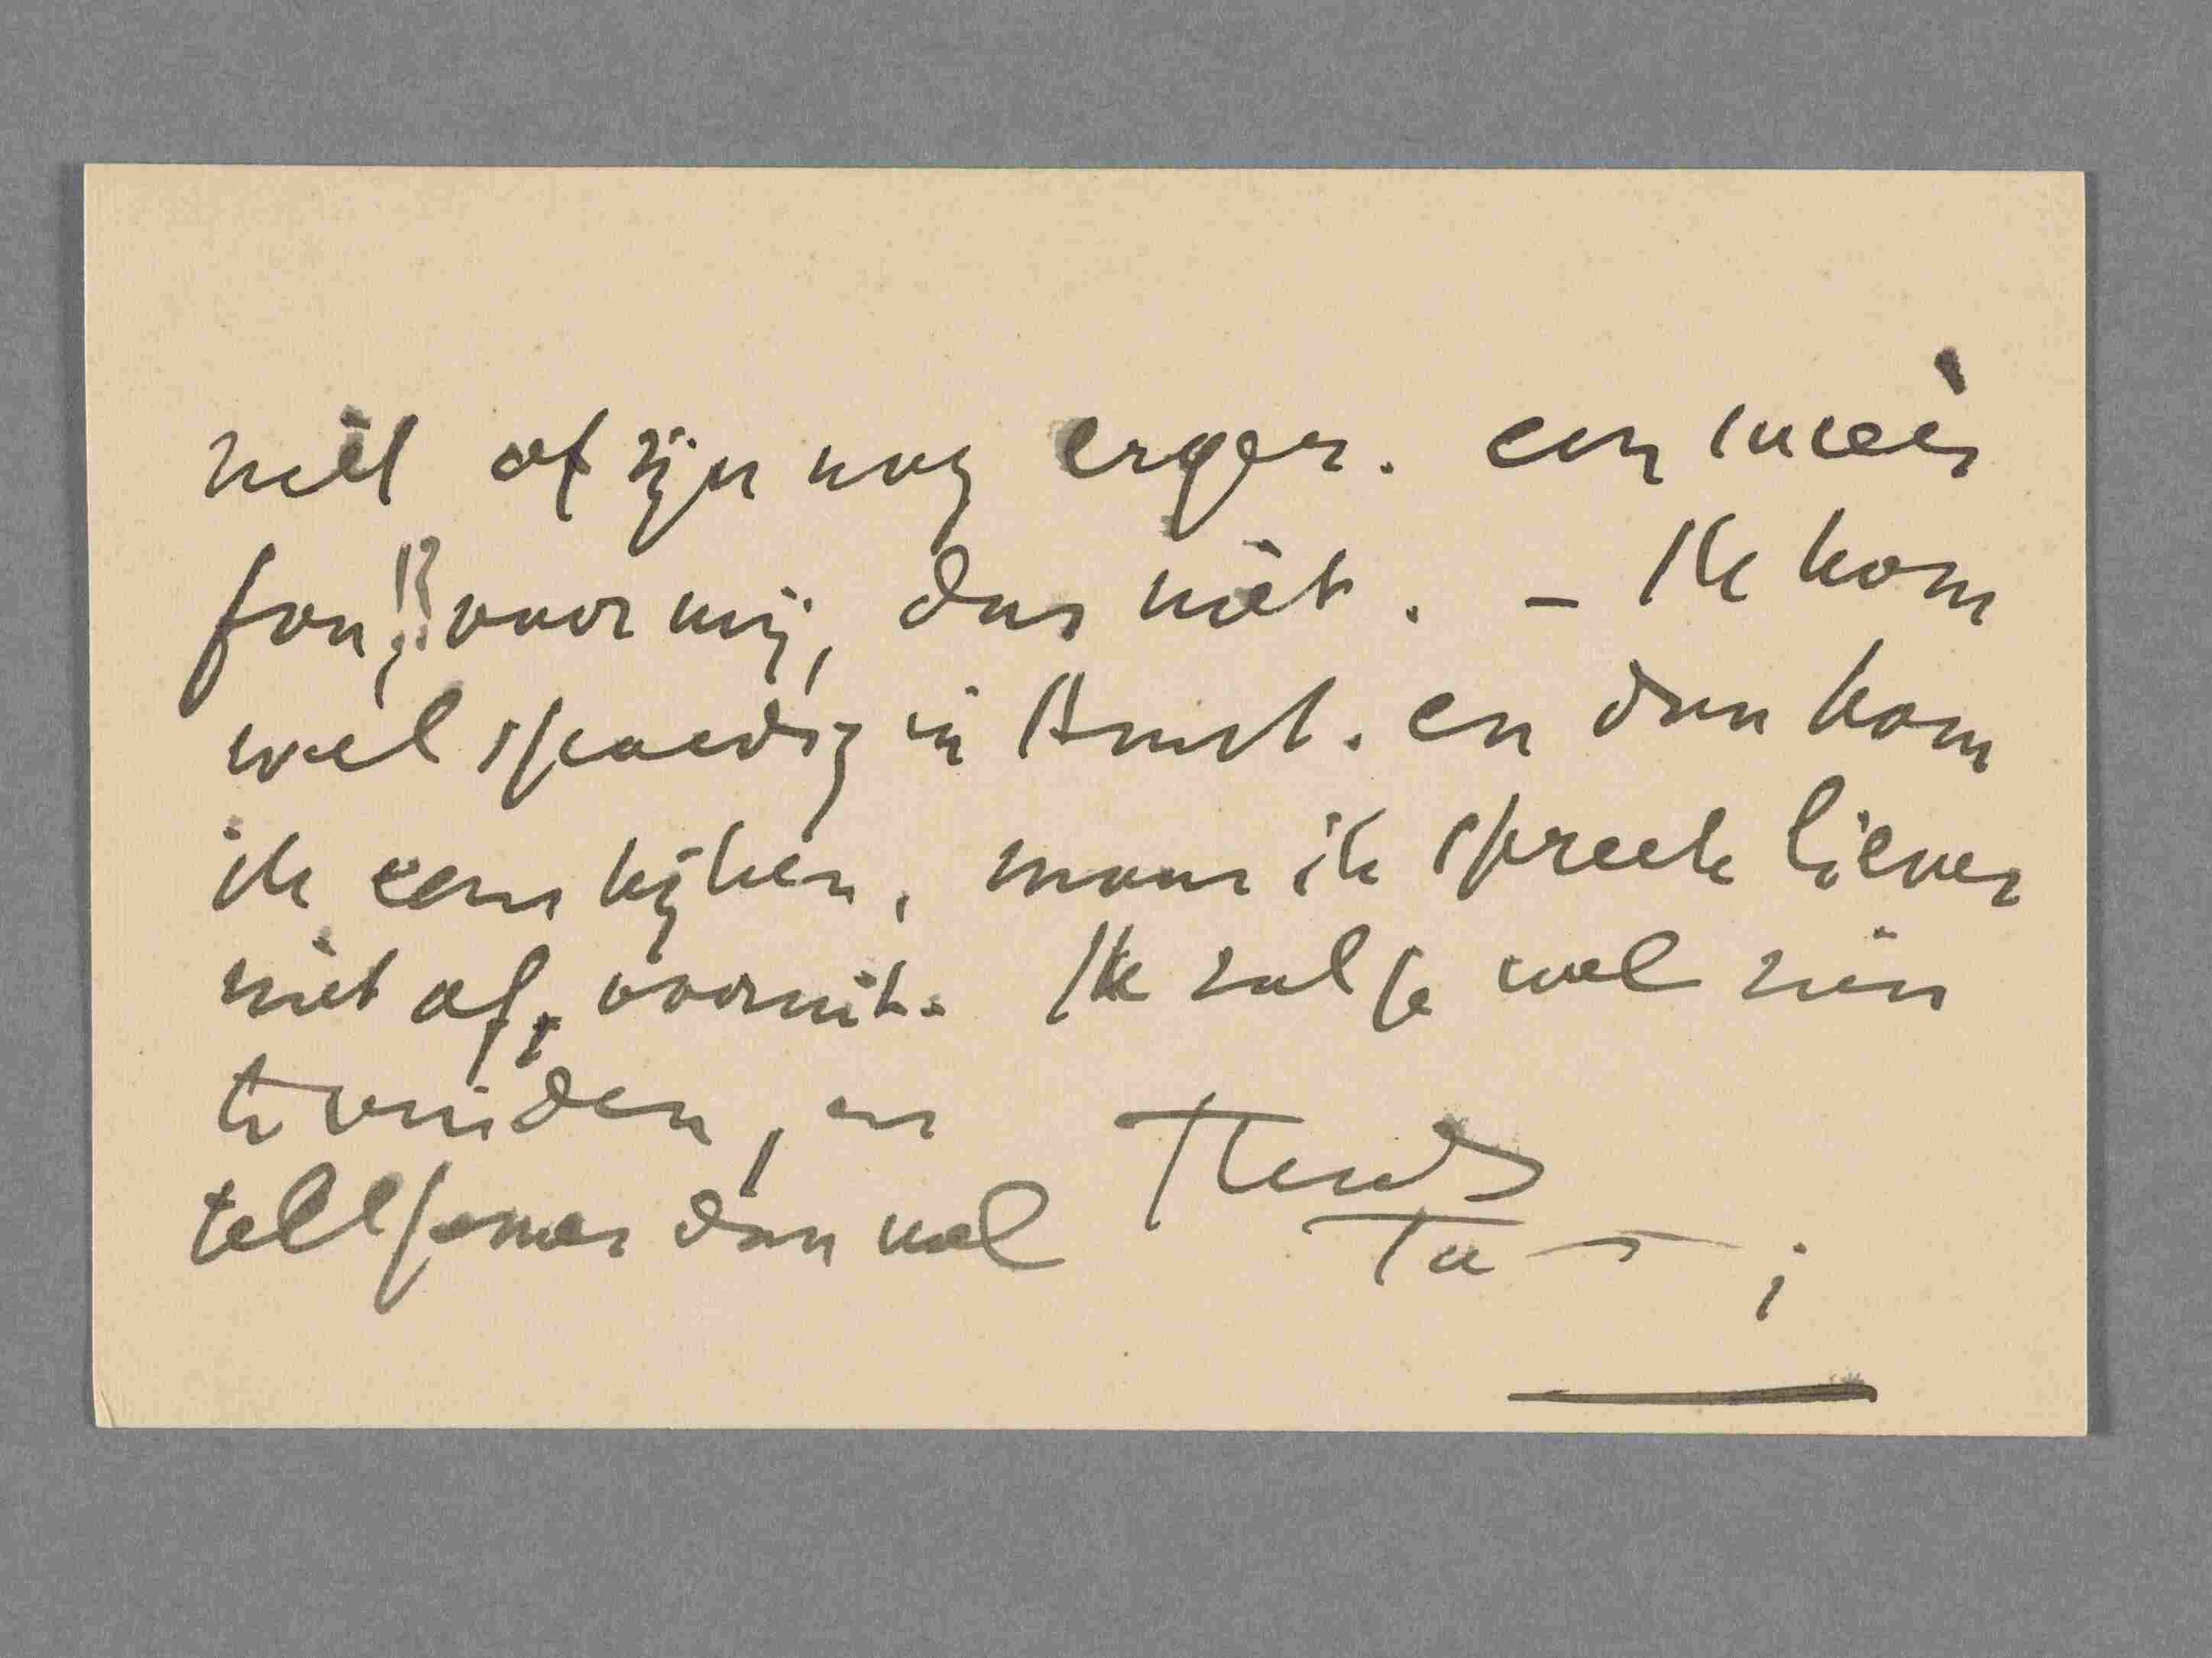 niet of zijn nog erger. een
fou!! voor mij, dus niet. – Ik kom
wel spoedig in Amst. en dan kom
ik eens kijken, maar ik spreek liever
niet af, vooruit. Ik zal je wel zien
te vinden, en
telefoneer dan wel